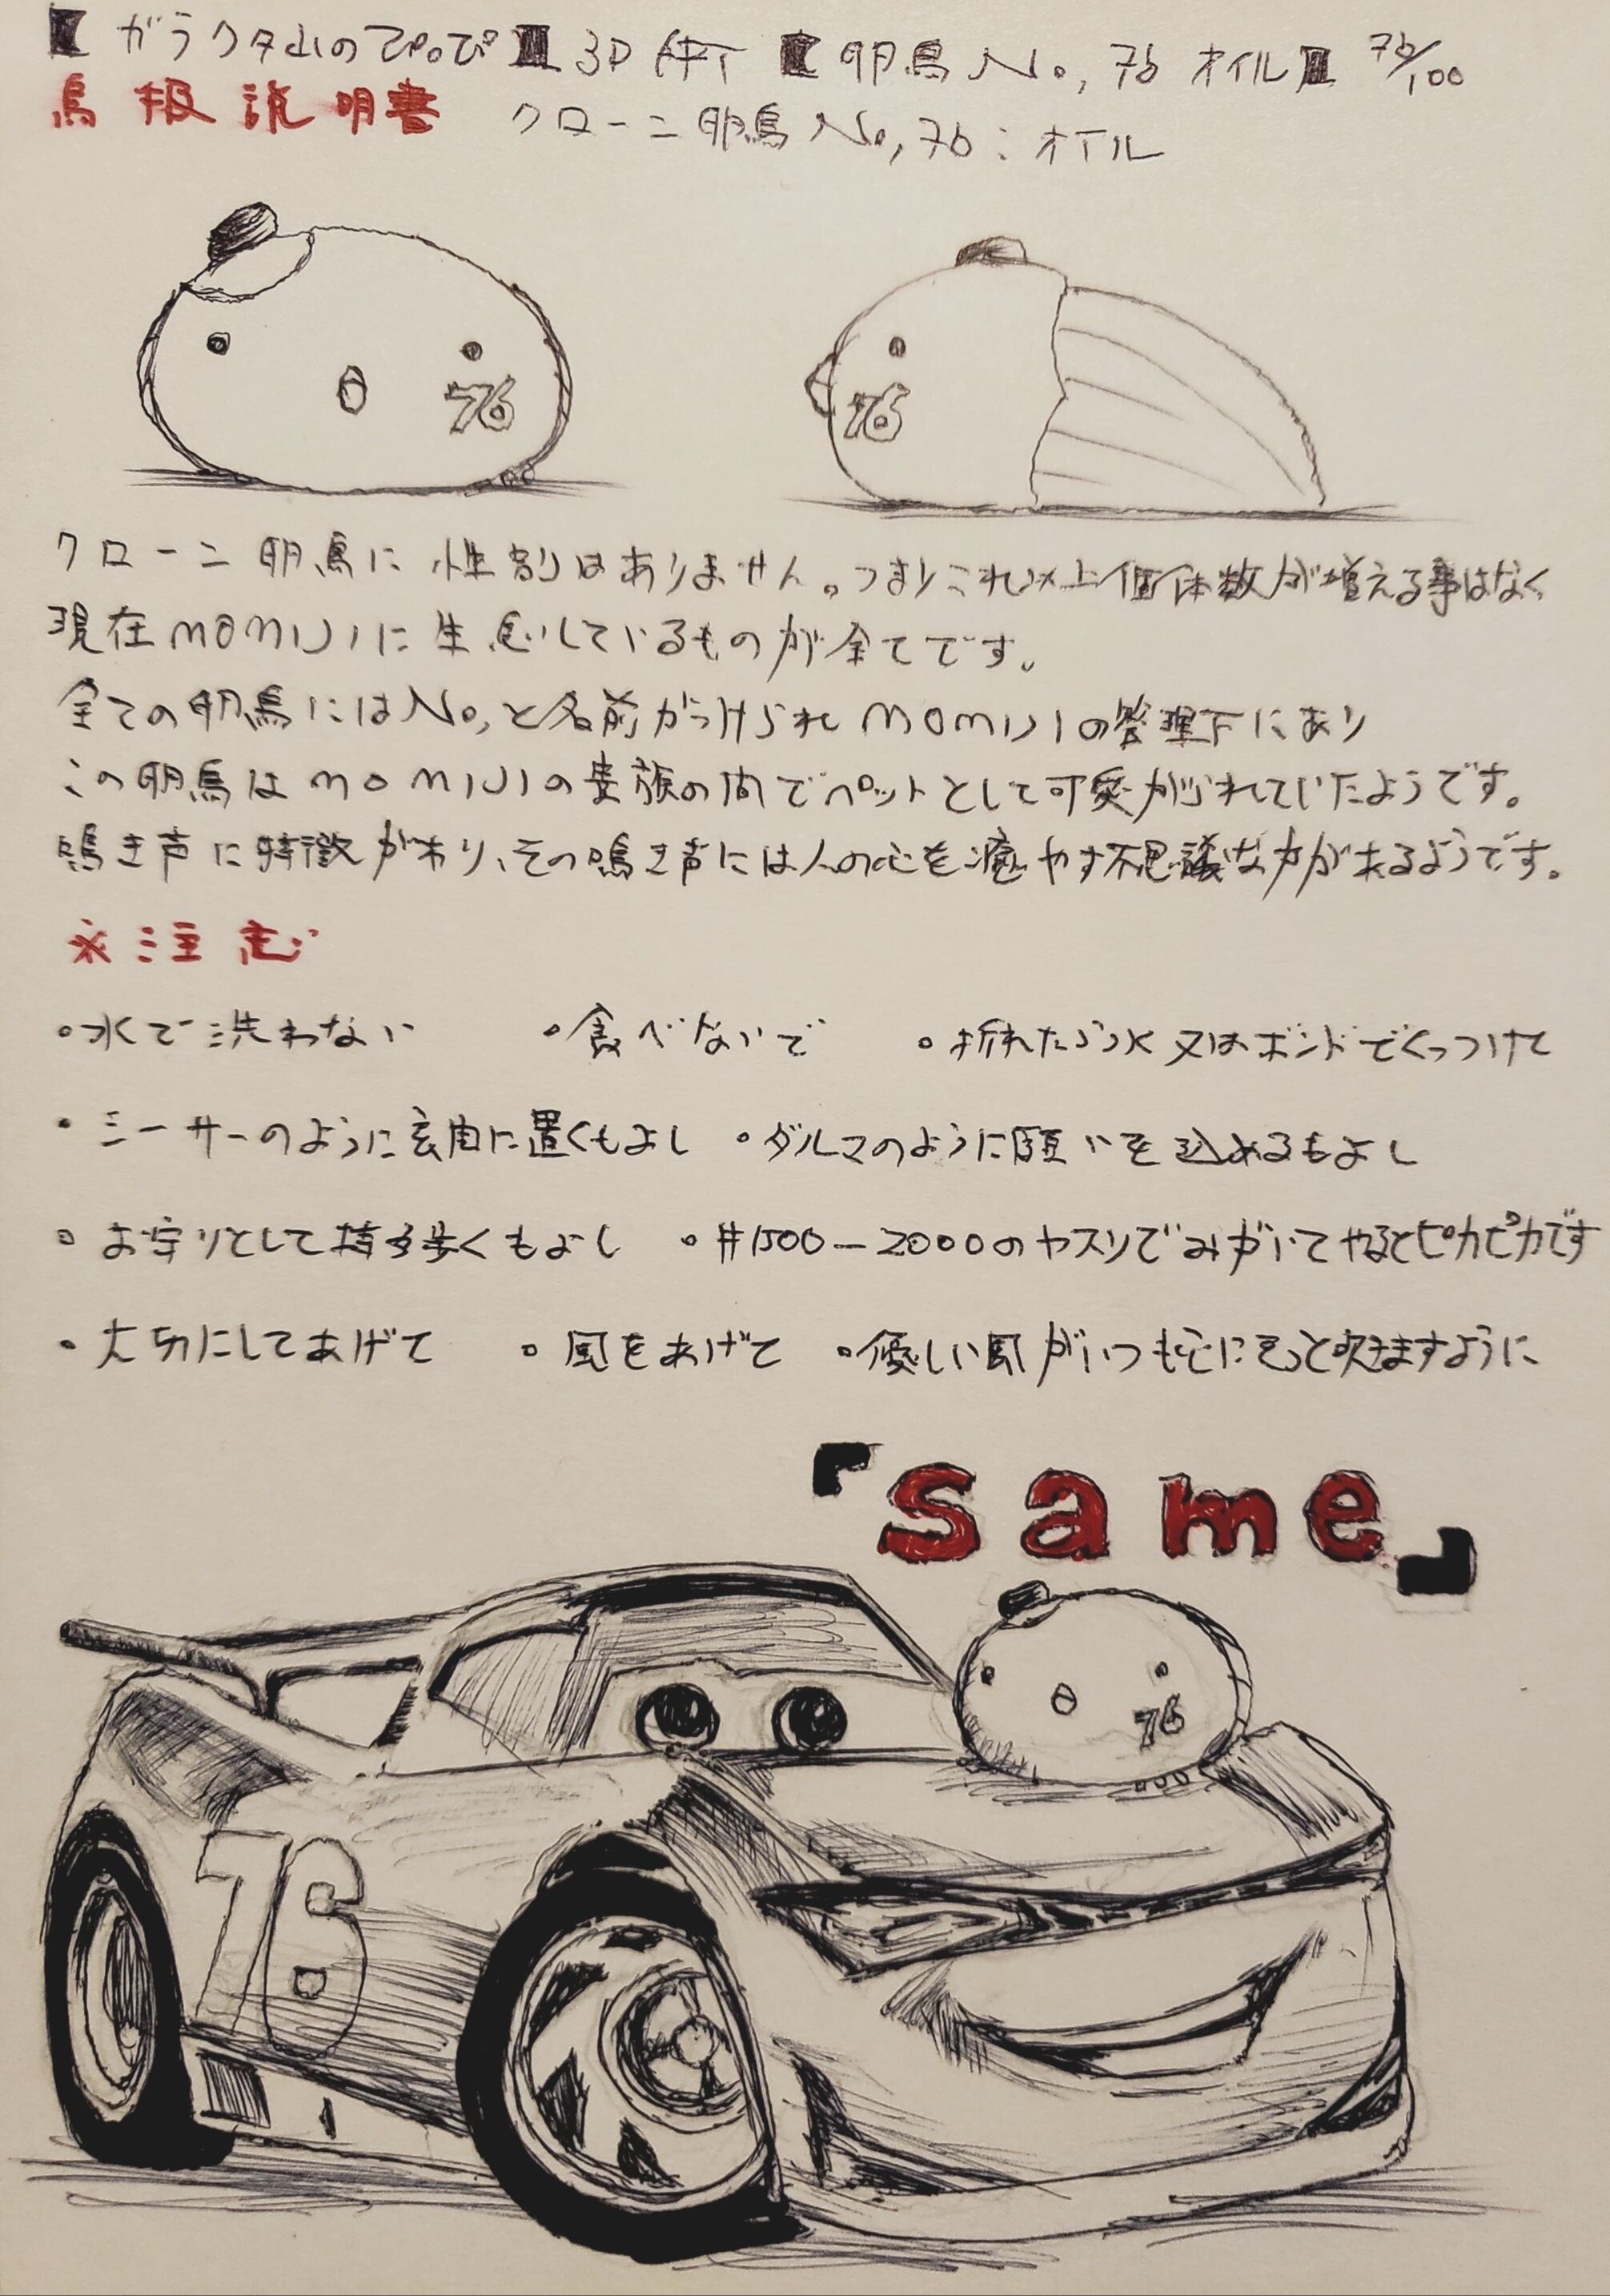 【ガラクタ山のぴっぴ】3D 作【卵鳥No,76 オイル】76/100
鳥扱説明書 クローン卵鳥No,76:オイル
76
76
クローン卵鳥に性別はありません。つまりこれ以上個体数が増える事はなく
現在MOMIJIに生息しているものが全てです。
全ての卵鳥にはNo,と名前がつけられMOMIJIの管理下にあり
この卵鳥はMOMIJIの貴族の間でペットとして可愛がられていたようです。
鳴き声に特徴があり、その鳴き声には人の心を癒やす不思議な力があるようです。
※注意
・水で洗わない ・食べないで ・折れたら水又はボンドでくっつけて
・シーサーのように玄関に置くもよし ・ダルマのように願いを込めるもよし
・お守りとして持ち歩くもよし ・#1500-2000のヤスリでみがいてやるとピカピカです
・大切にしてあげて ・風をあげて ・優しい風がいつも心にそっと吹きますように
『same』
76
76